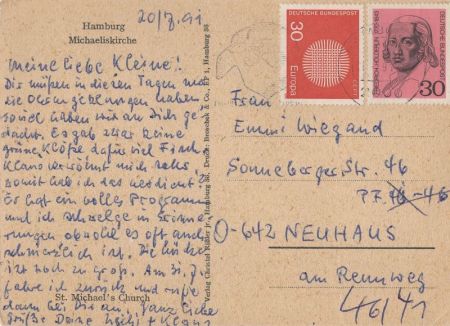 Hamburg
Michaeliskirche
20/7.91
Meine liebe Kleine!
Dir müssen in diesen Tagen
die Ohren geklungen haben
soviel haben wir an Dich ge-
dacht. Es gab zwar keine
grüne Klöße dafür viel Fisch
Klaus verwöhnt mich sehr
womit hab ich das verdient?
Es ist ein volles Programm
und ich schwelge in Erinne-
rungen obwohl es oft auch
schmerzlich ist. Die Lücke
ist noch zu groß. Am 31.7.
fahre ich zurück und rufe
dann bei Dir an. Ganz liebe
Grüße Deine + Klaus
St. Michael's Church
Verlag Christel Rößler jr., Hamburg
Druck: Hamburg 36
DEUTSCHE BUNDESPOST
30
Europa
FRIEDRICH HÖLDERLIN
DEUTSCHE BUNDESPOST
30
Frau
Emmi Wiegand
Sonneberger Str. 46
P.F. 46
O-642 NEUHAUS
am Rennweg
46/41